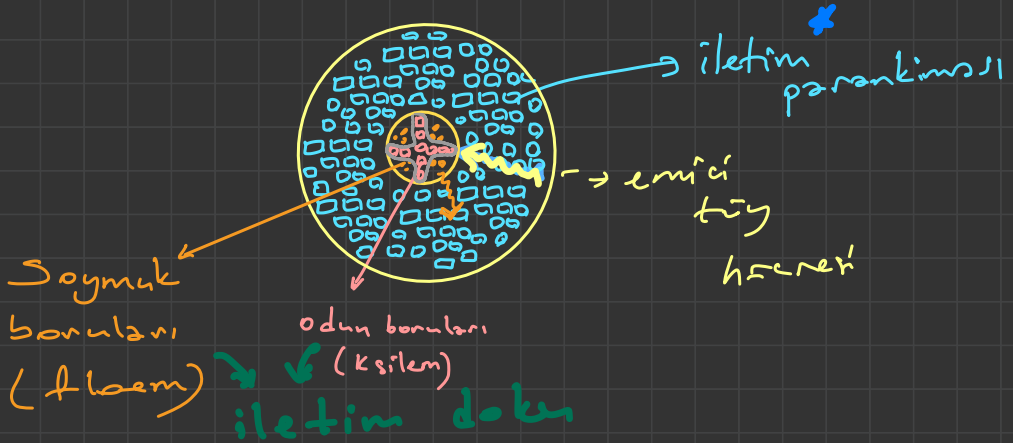 iletim
parankiması
emici
tüy
hücresi
Soymuk
boruları
(floem)
odun boruları
(ksilem)
iletim doku